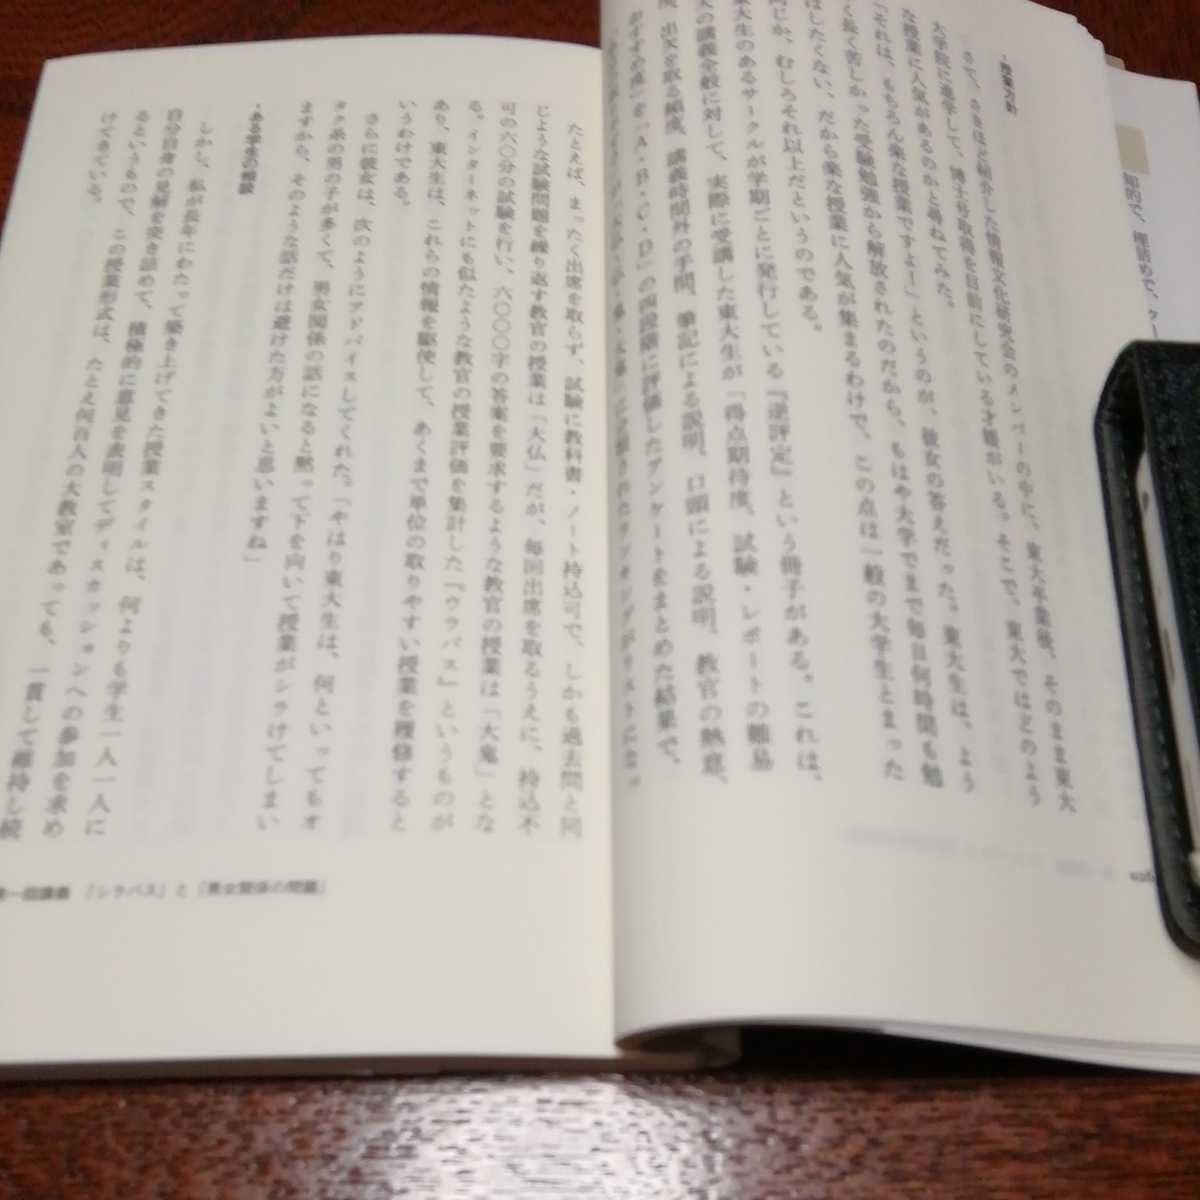 ・授業方針
さて、さきほど紹介した情報文化研究会のメンバーの中に、東大卒業後、そのまま東大
大学院に進学して、博士号取得を目前にしている才媛がいる。そこで、東大ではどのよう
な授業に人気があるのかと尋ねてみた。
「それは、もちろん楽な授業ですよー」というのが、彼女の答えだった。東大生は、よう
く長く苦しかった受験勉強から解放されたのだから、もはや大学でまで毎日何時間も勉
はしたくない、だから楽な授業に人気が集まるわけで、この点は一般の大学生とまった
同じか、むしろそれ以上だというのである。
東大生のあるサークルが学期ごとに発行している『逆評定』という冊子がある。これは、
大の講義全般に対して、実際に受講した東大生が「得点期待度、試験・レポートの難易
度、出欠を取る頻度、講義時間外の手間、筆記による説明、口頭による説明、教官の熱意、
おすすめ度」を「A・B・C・D」の四段階に評価したアンケートをまとめた結果で、
に分類されたランキングがリストになっ
たとえば、まったく出席を取らず、試験に教科書・ノート持込可で、しかも過去問と同
じような試験問題を繰り返す教官の授業は「大仏」だが、毎回出席を取るうえに、持込不
可の六〇分の試験を行い、六〇〇〇字の答案を要求するような教官の授業は「大鬼」とな
る。インターネットにも似たような教官の授業評価を集計した『ウラバス』というものが
あり、東大生は、これらの情報を駆使して、あくまで単位の取りやすい授業を履修すると
いうわけである。
さらに彼女は、次のようにアドバイスしてくれた。「やはり東大生は、何といってもオ
タク系の男の子が多くて、男女関係の話になると黙って下を向いて授業がシラけてしまい
ますから、そのような話だけは避けた方がよいと思いますね」
・ある学生の相談
しかし、私が長年にわたって築き上げてきた授業スタイルは、何よりも学生一人一人に
自分自身の見解を突き詰めて、積極的に意見を表明してディスカッションへの参加を求め
るというもので、この授業形式は、たとえ何百人の大教室であっても、一貫して維持し続
けてきている。
第一回講義 「シラバス」と「男女関係の問題」
知的で、理詰めで、クー